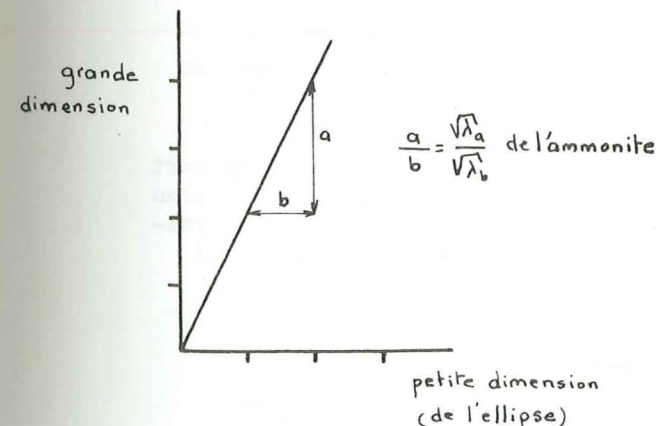 grande
dimension
a
b
a/b = √λa/√λb de l'ammonite
petite dimension
(de l'ellipse)